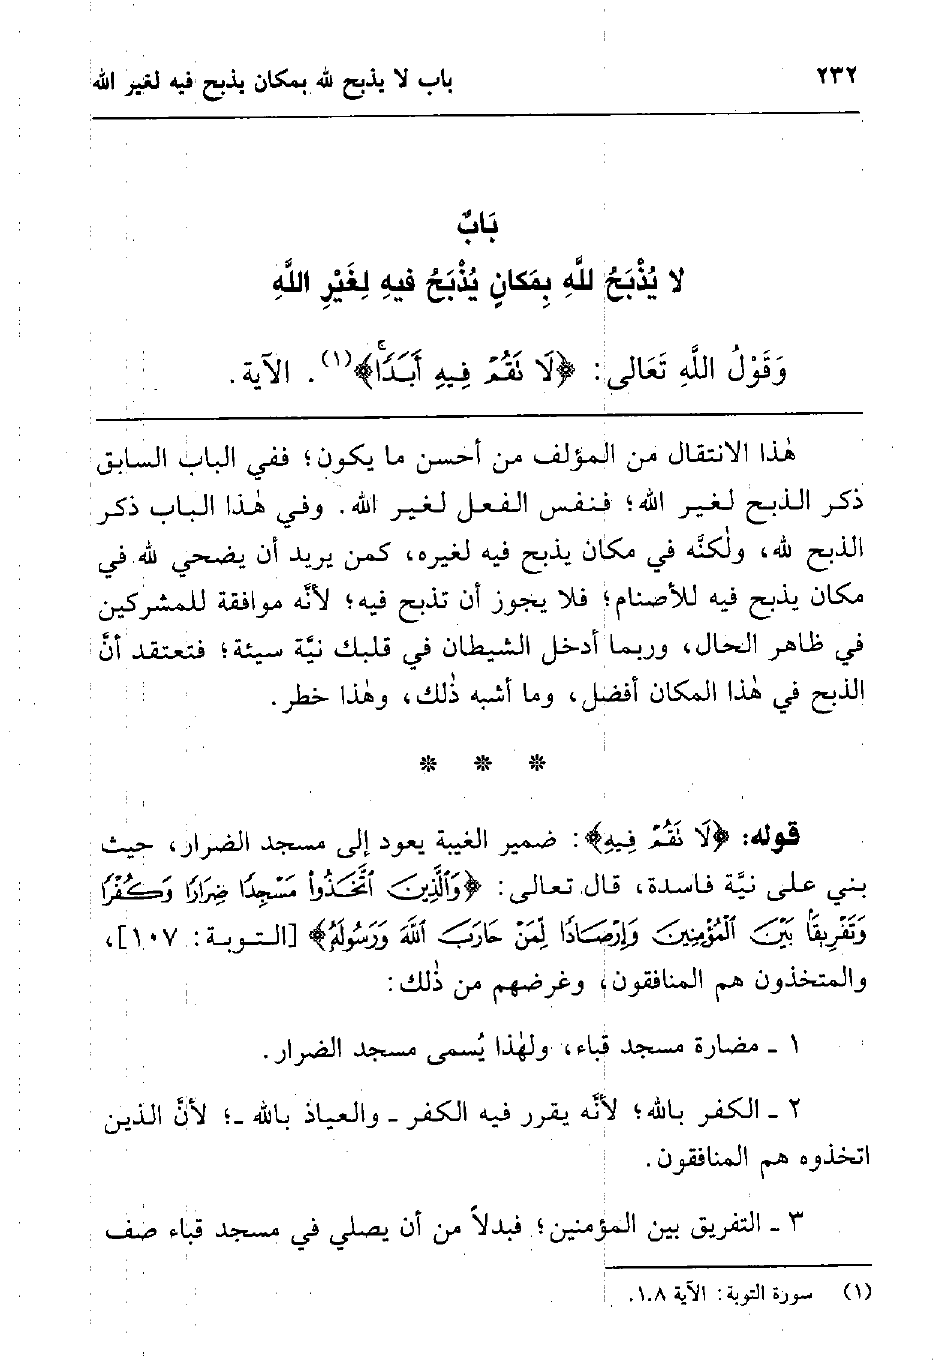 ٢٣٢ باب لا يذبح لله بمكان يذبح فيه لغير الله
بَابٌ
لا يُذْبَحُ للَّهِ بِمَكانٍ يُذْبَحُ فيهِ لِغَيْرِ اللَّهِ
وَقَوْلُ اللَّهِ تَعَالى: ﴿لَا نَقُمۡ فِيهِ أَبَدٗاۚ﴾(١). الآية.
هٰذا الانتقال من المؤلف من أحسن ما يكون؛ ففي الباب السابق
ذكر الذبح لغير الله؛ فنفس الفعل لغير الله. وفي هٰذا الباب ذكر
الذبح لله، ولٰكنَّه في مكان يذبح فيه لغيره، كمن يريد أن يضحي لله في
مكان يذبح فيه للأصنام؛ فلا يجوز أن تذبح فيه؛ لأنَّه موافقة للمشركين
في ظاهر الحال، وربما أدخل الشيطان في قلبك نيَّة سيئة؛ فتعتقد أنَّ
الذبح في هٰذا المكان أفضل، وما أشبه ذٰلك، وهٰذا خطر.
* * *
قوله: ﴿لَا نَقُمۡ فِيهِ﴾: ضمير الغيبة يعود إلى مسجد الضرار، حيث
بني على نيَّة فاسدة، قال تعالى: ﴿وَٱلَّذِينَ ٱتَّخَذُواْ مَسۡجِدٗا ضِرَارٗا وَكُفۡرٗا
وَتَفۡرِيقَۢا بَيۡنَ ٱلۡمُؤۡمِنِينَ وَإِرۡصَادٗا لِّمَنۡ حَارَبَ ٱللَّهَ وَرَسُولَهُۥ﴾ [التوبة: ١٠٧]،
والمتخذون هم المنافقون، وغرضهم من ذٰلك:
١ ـ مضارة مسجد قباء، ولهٰذا يُسمى مسجد الضرار.
٢ ـ الكفر بالله؛ لأنَّه يقرر فيه الكفر ـ والعياذ بالله ـ؛ لأنَّ الذين
اتخذوه هم المنافقون.
٣ ـ التفريق بين المؤمنين؛ فبدلاً من أن يصلي في مسجد قباء صف
(١) سورة التوبة: الآية ١٠٨.